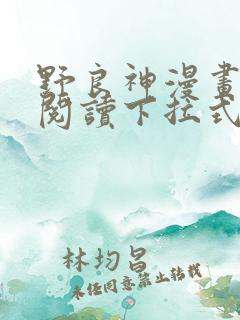 野良神漫畫
閱讀下拉式
林均昌
未經同意禁止轉載